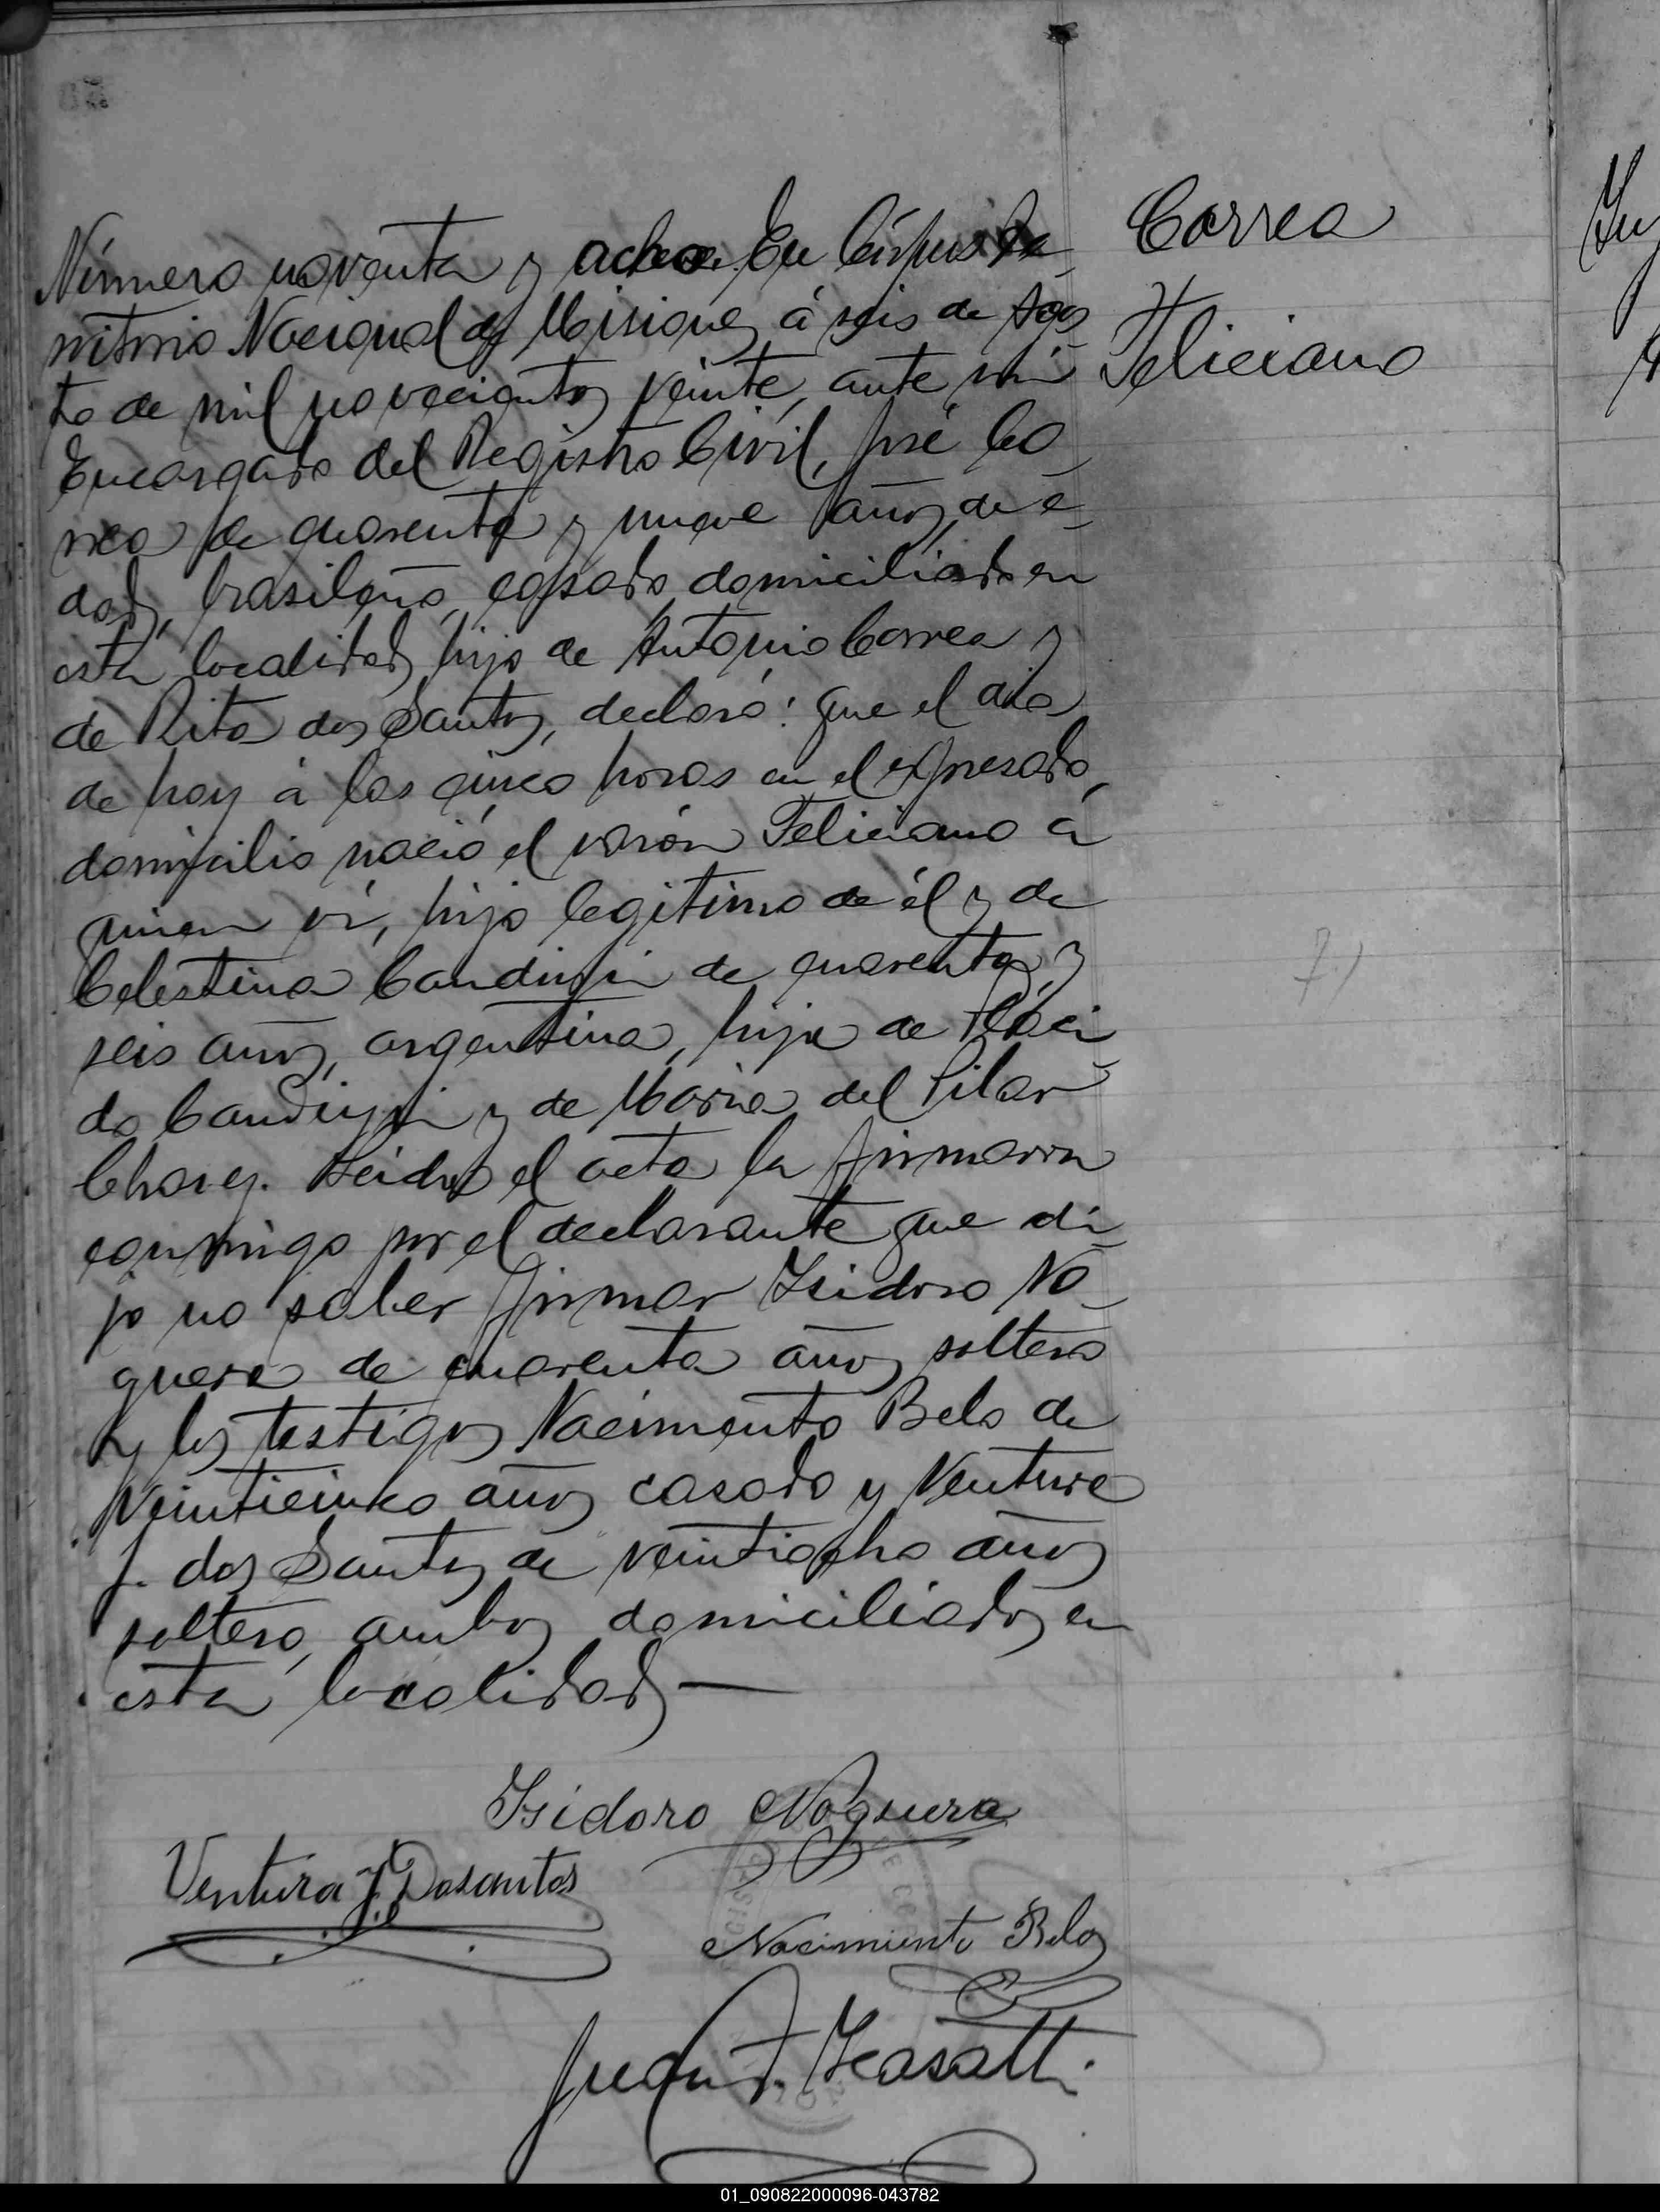 Correa
Feliciano
Número noventa y ocho. En Córpus Te
rritorio Nacional de Misiones, á seis de Agos
to de mil novecientos veinte, ante mi
Encargado del Registro Civil, José Co
rrea de cuarenta y nueve años de e
dad, brasileño, casado domiciliado en
esta localidad, hijo de Antonio Correa y
de Rita dos Santos, declaró: que el dia
de hoy á las cinco horas en el expresado
domicilio nació el varón Feliciano á
quien ví, hijo legitimo de él y de
Celestina de cuarenta y
seis años, argentina, hija de Placi
do y de Maria del Pilar
Chaves. Leida el acta la firmaron
conmigo por el declarante que di
jo no saber firmar Isidoro No
guera de cuarenta años soltero
y los testigos Nacimento Belo de
veinticinco años casado y Ventura
J. dos Santos de veintiocho años
soltero, ambos domiciliados en
esta localidad —
Isidoro Noguera
Ventura J. Dosantos
Nacimiento Belo
Juan
01_090822000096-043782